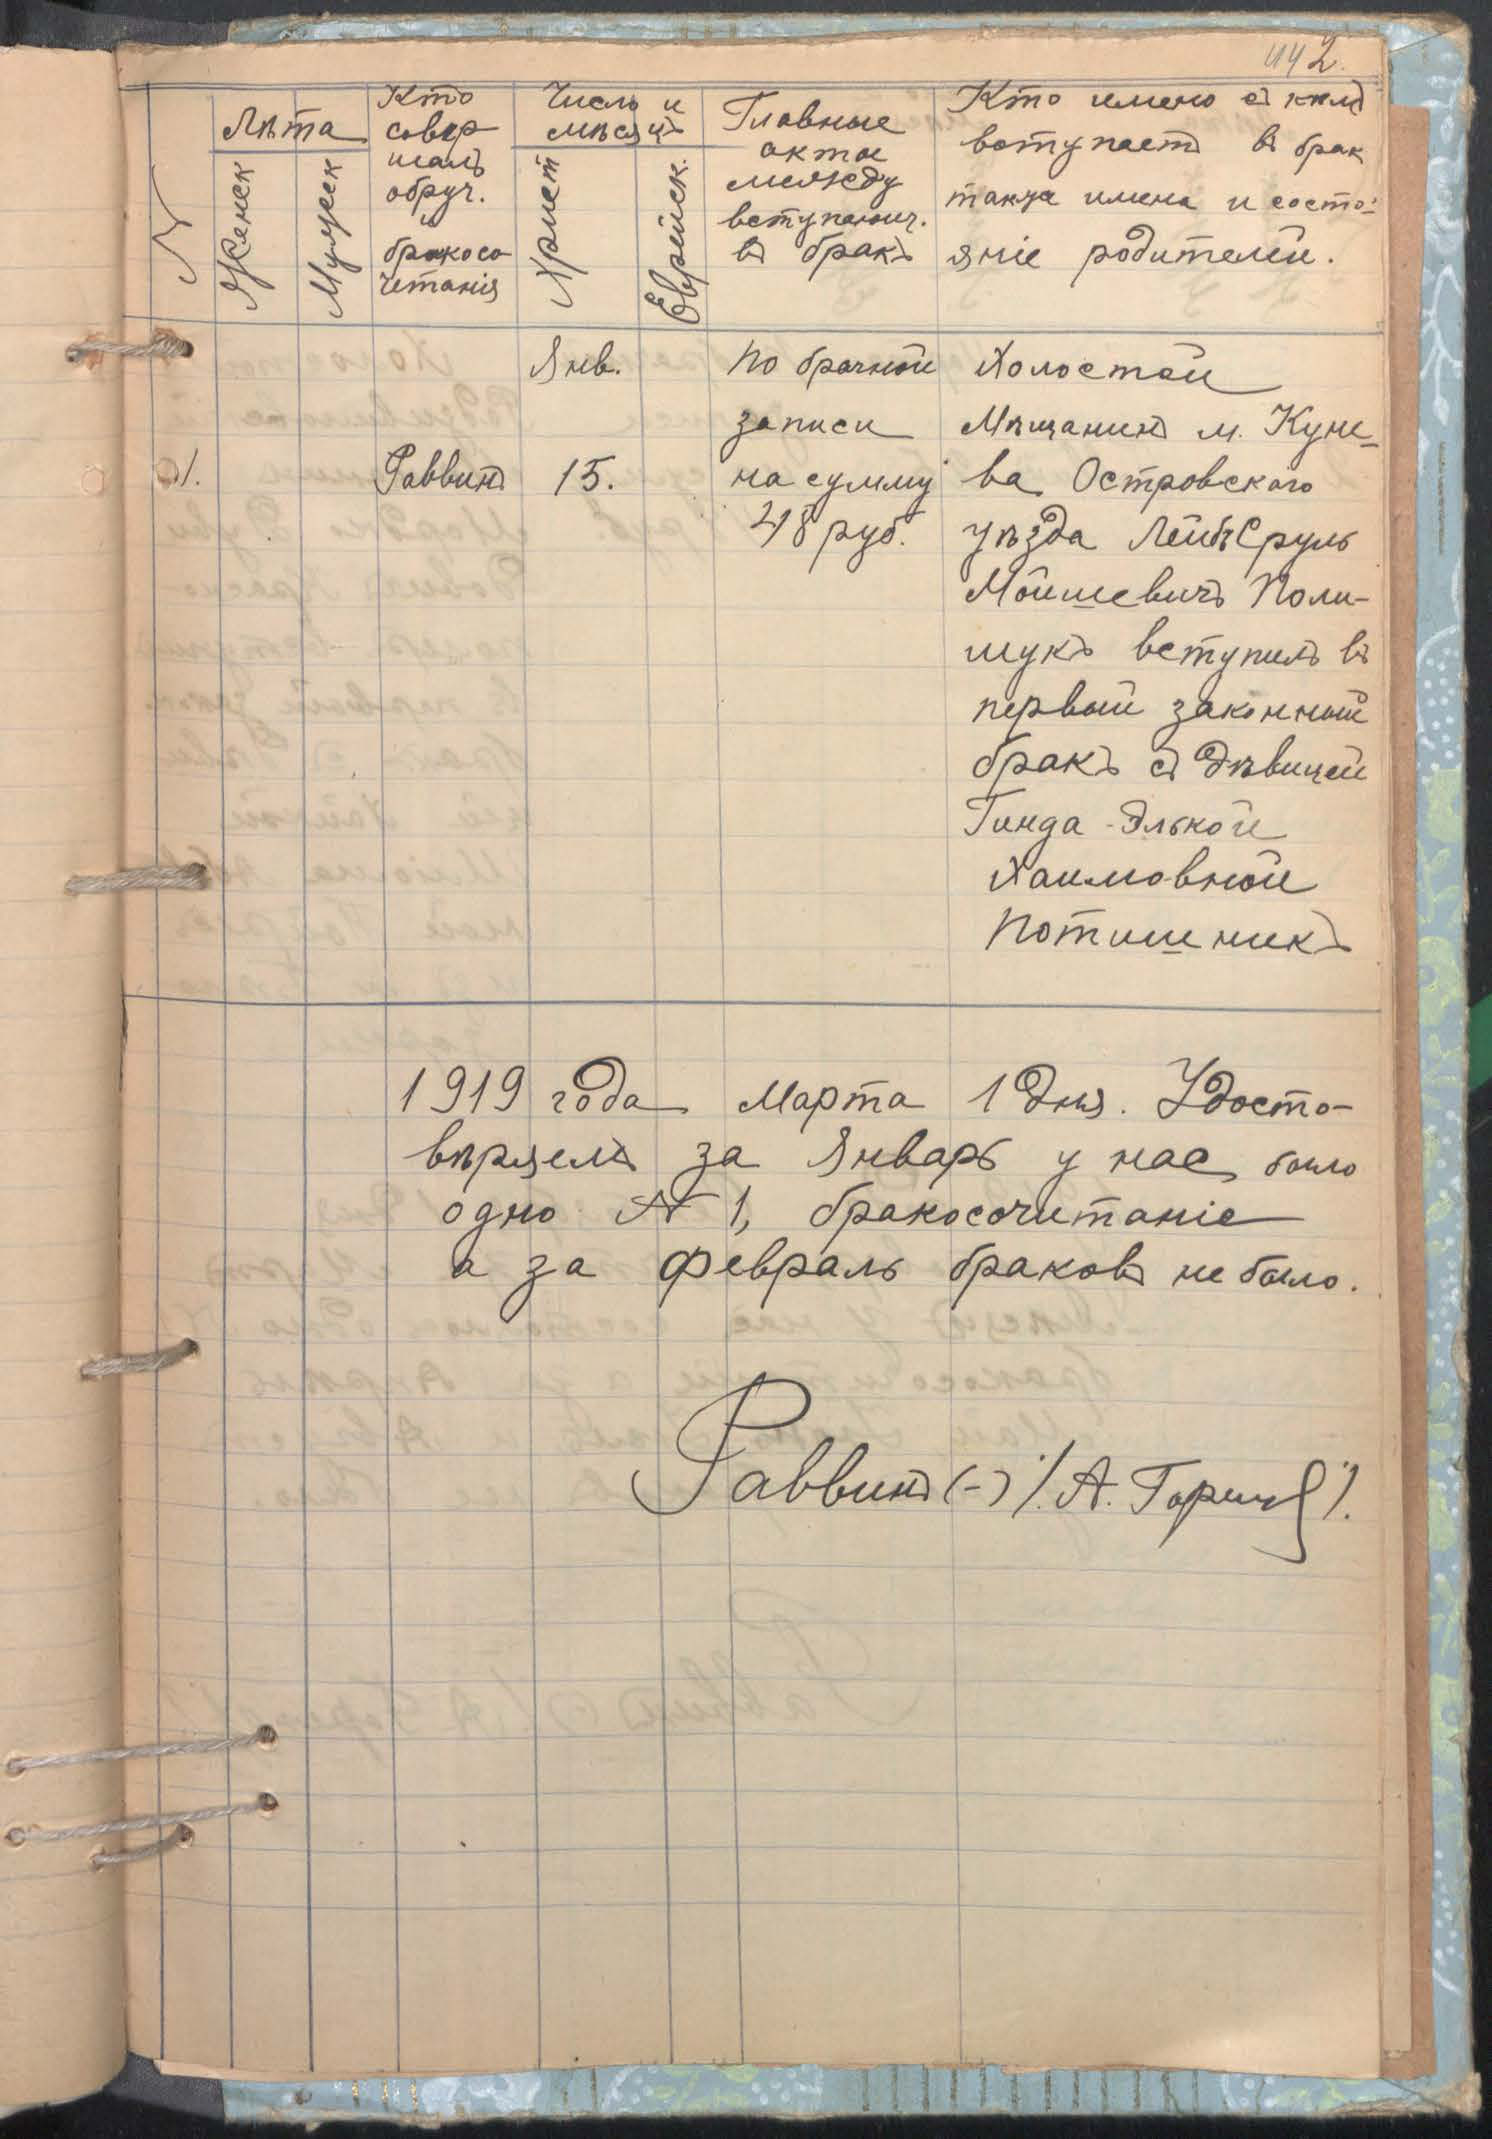 2.
№
Лѣта
Женск
Мужск
Кто
совер
шалъ
обруч.
и
бракосо
четанія
Число и
мѣсяцъ
Христ
Еврейск.
Главные
акты
между
вступающ.
въ бракъ
Кто имено съ кемъ
вступаетъ въ брак
также имена и состо-
яніе родителей.
1.
Раввинъ
Янв.
15.
По брачной
записи
на сумму
48 руб.
Холостой
Мѣщанинъ м. Куне-
ва Островского
уѣзда ЛейбъСруль
Мошевичъ Поли-
щукъ вступилъ въ
первый законный
бракъ съ дѣвицей
Гинда-Элькой
Хаимовной
Потишникъ
1919 года Марта 1 дня. Удосто-
вѣряемъ за Январь у нас было
одно № 1, бракосочитаніе
а за Февраль браковъ не было.
Раввинъ (-) /. А. /.